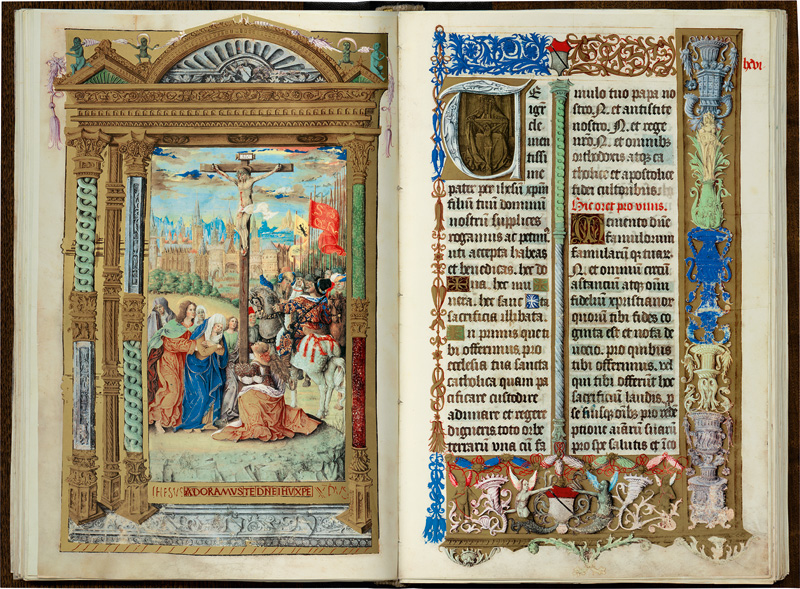 IHESUS ADORAMVSTEDNEIHVXPE
lxvi
TE
igit̃
cle
menti
ssi
me
pater per ihesu xpm̃
filiũ tuũ dominũ
nostrũ supplices
rogamus ac petim᾽
uti accepta habeas
et benedicas. hec do
na. hec mu
nera. hec sanc ta
sacrificia illibata.
In primis que ti
bi offerimus. pro
ecclesia tua sancta
catholica quam pa
cificare custodire
adunare et regere
digneris. toto orbe
terrarũ vna cũ fa
mulo tuo papa no
stro .N. et antistite
nostro .N. et rege
nr̃o .N. et omnibus
orthodoxis atq̃ ca
tholice et apostolice
fidei cultoribus.
Hic oret pro viuis.
Memento dñe
famulorum
famularũq̃ tuarũ
.N. et omniũ circũ
astanciũ atq̃ oĩm
fideliũ xpristianor
quorũ tibi fides co
gnita est et nota de
uocio. pro quibus
tibi offerimus. vel
qui tibi offerũt hoc
sacrificiũ laudis. p̱
se suisq̃ om̃ibz pro rede
ptione aĩarũ suarũ
pro spe salutis et ĩco